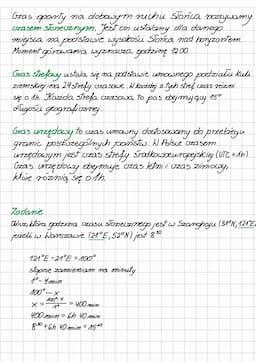 Czas oparty na dobowym ruchu Słońca nazywamy
czasem słonecznym. Jest on ustalany dla danego
miejsca na podstawie wysokości Słońca nad horyzontem.
Moment górowania wyznacza godzinę 12:00.
Czas strefowy ustala się na podstawie umownego podziału kuli
ziemskiej na 24 strefy czasowe. W każdej z tych stref czas różni
się o 1h. Każda strefa czasowa to pas obejmujący 15°
długości geograficznej.
Czas urzędowy to czas umowny dostosowany do przebiegu
granic poszczególnych państw. W Polsce czasem
urzędowym jest czas strefy środkowoeuropejskiej (UTC+1h)
Czas urzędowy obejmuje czas letni i czas zimowy,
które różnią się o 1h.
Zadanie
godzina czasu słonecznego jest w Szanghaju (31°N, 121°E)
jeżeli w Warszawie (21°E, 52°N) jest 8³⁰
121°E - 21°E = 100°
stopnie zamieniam na minuty
1° - 4min
100° - x
x = = 400 min
400min = 6h 40 min
8³⁰ + 6h 40 min = 15¹⁰